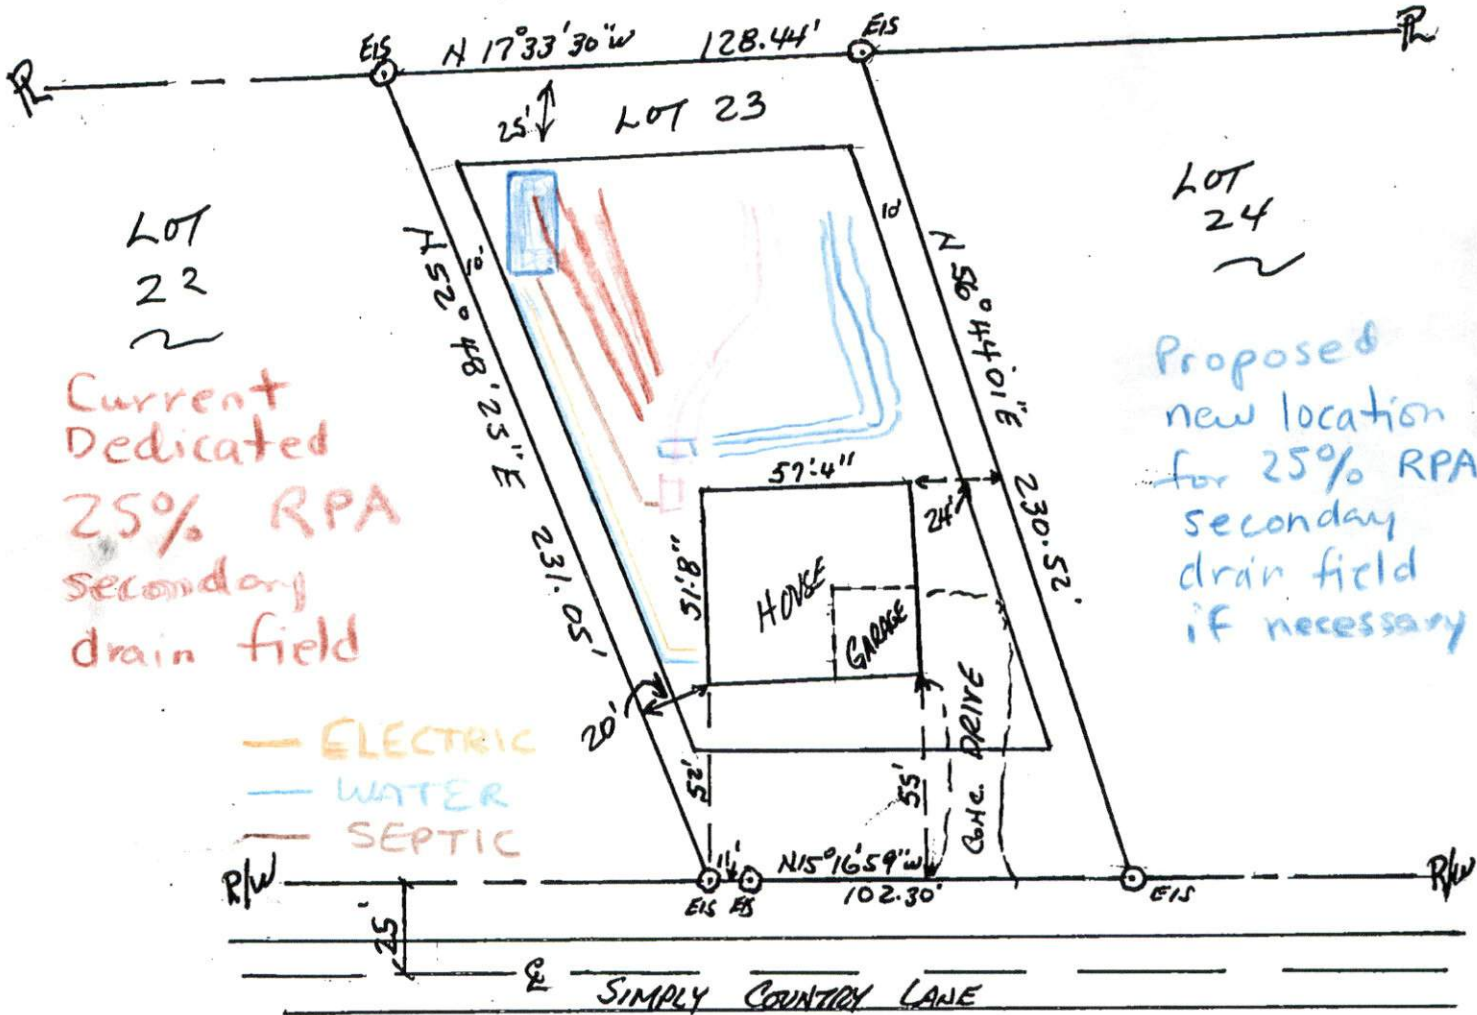 EIS
N 17°33'30"W 128.44'
EIS
PL
PL
25'
LOT 23
LOT
22
LOT
24
10'
10'
N 52° 48' 25" E 231.05'
N 56° 44' 01" E 230.52'
Current
Dedicated
25% RPA
secondary
drain field
Proposed
new location
for 25% RPA
seconday
drain field
if necessary
57'.4"
24'
51'.8"
HOUSE
GARAGE
20'
52'
55'
CONC. DRIVE
ELECTRIC
WATER
SEPTIC
R/W
11'
N15°16'59"W
102.30'
R/W
EIS EIS
EIS
25'
CL
SIMPLY COUNTRY LANE